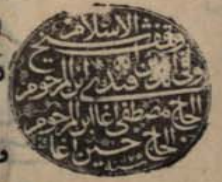 وقف شيخ الاسلام
ولي الدين افندى ابن المرحوم
الحاج مصطفى اغا ابن المرحوم
الحاج حسين اغا
سنه